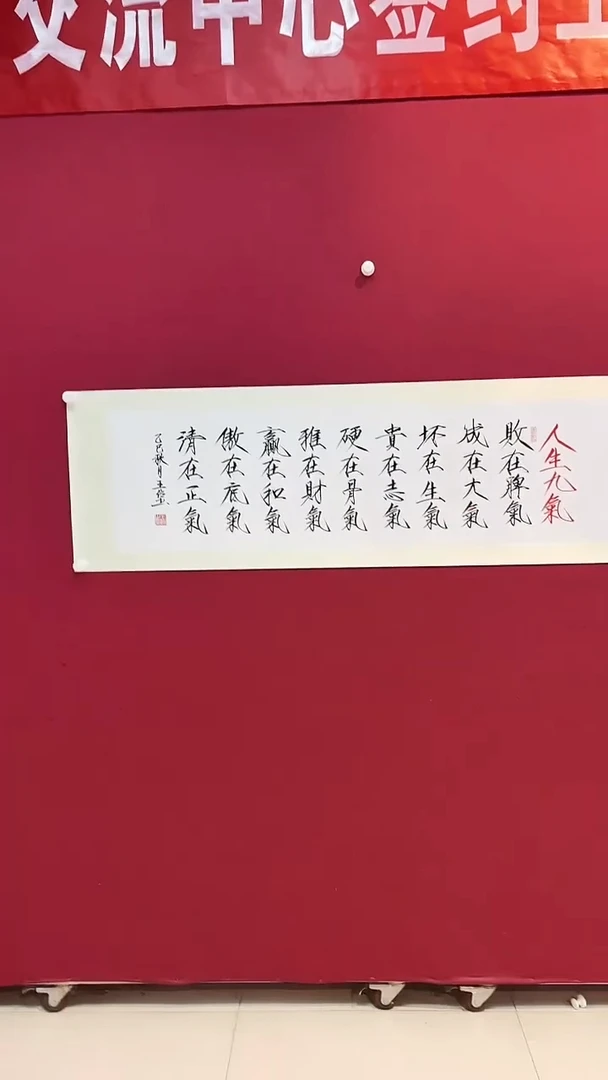 交流中心签约
人生九氣
敗在脾氣
成在大氣
坏在生氣
貴在志氣
硬在骨氣
雅在財氣
贏在和氣
傲在底氣
清在正氣
乙巳秋月王